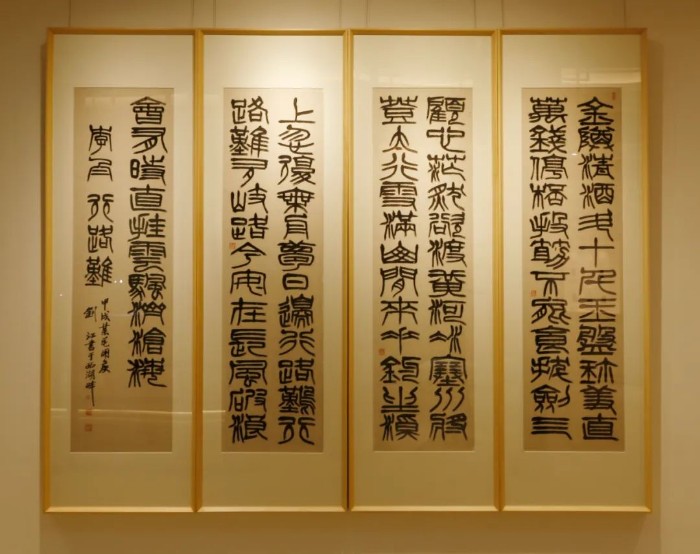 金樽清酒斗十千玉盤珎羞直
萬錢停桮投箸不能食拔劍亖
顧心茫然欲渡黃河冰塞川將
登太行雪滿山閒來垂釣坐溪
上忽復乘舟夢日邊行路難行
路難多岐路今安在長風破浪
會有時直挂雲颿濟滄海
李白行路難
甲戌國慶
劉江書于西湖畔